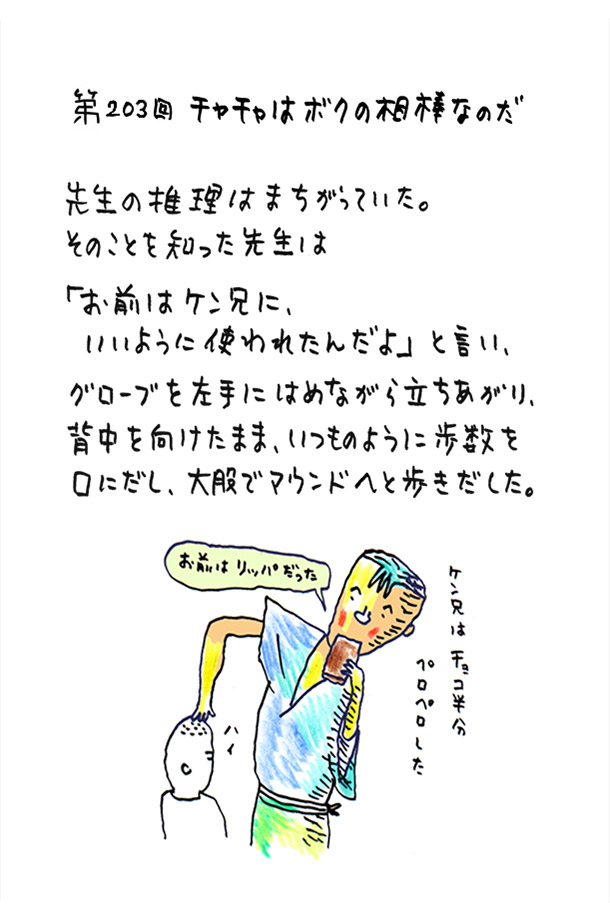 第203回 チャチャはボクの相棒なのだ
先生の推理はまちがっていた。
そのことを知った先生は
「お前はケン兄に、
いいように使われたんだよ」と言い、
グローブを左手にはめながら立ちあがり、
背中を向けたまま、いつものように歩数を
口にだし、大股でマウンドへと歩きだした。
お前はリッパだった
ケン兄はチョコ半分
ペロペロした
ハイ